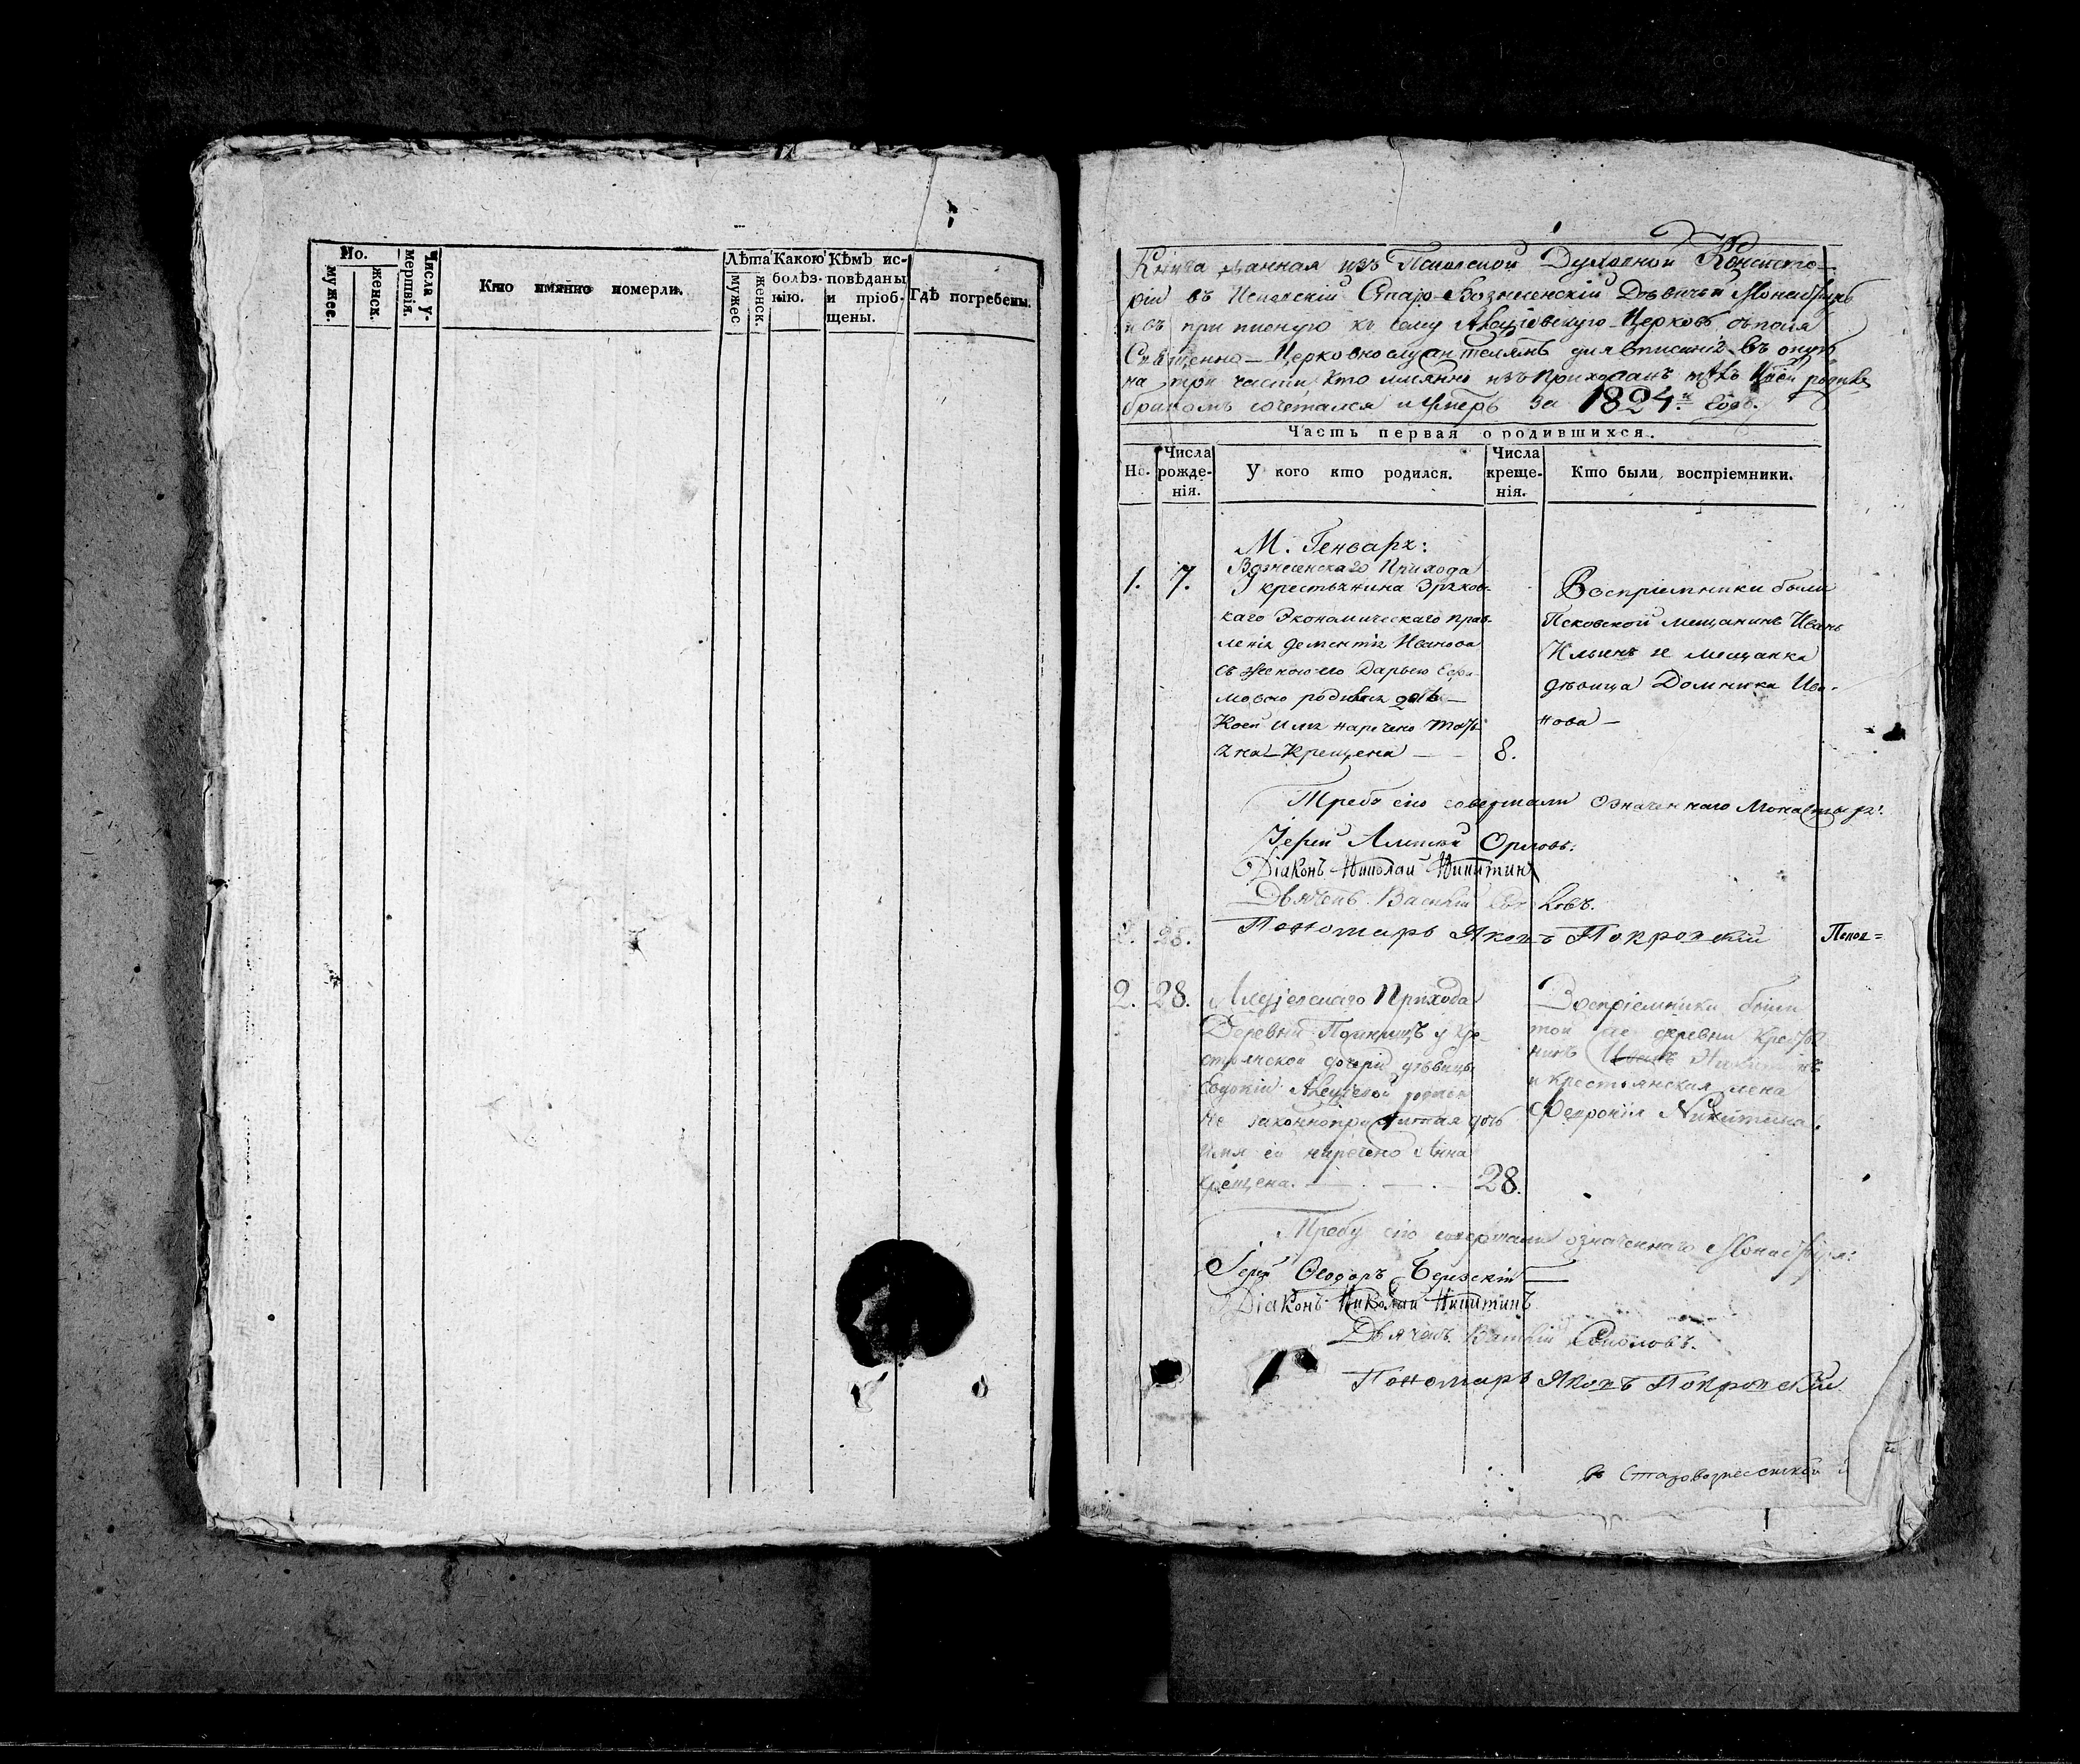 No.
мужес.
женск.
Числа у-
мертвія.
Кто имянно померли.
Лѣта
мужес
женск.
Какою
болѣз-
нію.
Кѣмъ ис-
повѣданы
и пріоб-
щены.
Гдѣ погребены.
Книга данная изъ Псковской Духовной Консисто-
ріи въ Псковскій Старо-Вознесенскій Дѣвичьи Монастырь
и съ приписную къ сему Алексіевскую Церковь
Священно-Церковнослужителямъ для вписанія въ оную
на три части кто имянно изъ Прихожанъ
бракомъ сочетался и умеръ за 1824.й Годъ.
Часть первая о родившихся.
No.
Числа
рожде-
нія.
У кого кто родился.
Числа
креще-
нія.
Кто были воспріемники.
М. Генварь:
Вознесенскаго Прихода
1. 7. У крестьянина
каго Экономическаго прав-
ленія Дементія Иванова
съ женою его Дарьею
родилась дочь
Коей имя наречено Тать-
яна Крещена 8.
Воспріемники были
Псковской мещанинъ Иванъ
Ильинъ и мещанка
дѣвица Домника Ива-
нова
Требу сію совершали означеннаго Монастыря:
Іерей Алексій Орловъ.
Діаконъ Николай Никитинъ
Дьячекъ Василій
Пономарь Яковъ Покровскій
2. 28. Алексіевскаго Прихода
Деревни у кре-
стьянской дочери дѣвицы
Евдокіи Алексѣевой
не законноприжитая дочь
имя ей наречено Анна
Крещена. 28.
Воспріемники были
той же деревни Крестья
нинъ Иванъ Никитинъ
и крестьянская жена
Февронія Никитина.
Требу сію совершали означеннаго Монастыря:
Іерей Ѳеодоръ
Діаконъ Николай Никитинъ
Дьячекъ Василій Соколовъ.
Пономарь Яковъ Покровскій
въ Старовознесенской